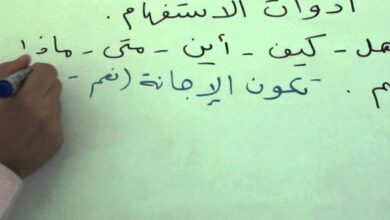 أدوات الاستفهام.
هل - كيف - أين - متى - ماذا
تكون الإجابة (نعم -